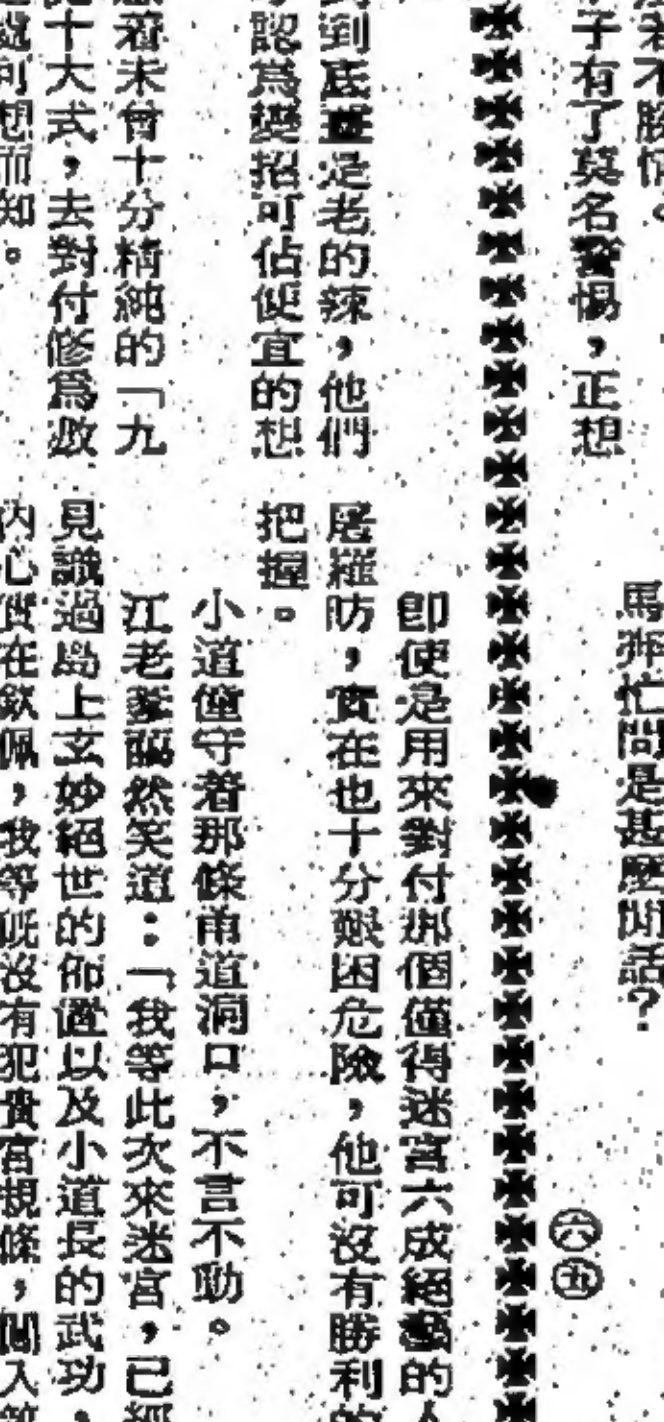 若不勝情。
子有了莫名警惕，正想
馬忙問是甚麼閒話？
㊅㊄
到底薑是老的辣，他們
認爲變招可佔便宜的想
着未曾十分精純的「九
十大式，去對付修爲
想而知。
即使是用來對付那個僅得迷宮六成絕藝的人
屠羅防，實在也十分艱困危險，他可沒有勝利的
把握。
小道僮守着那條甬道洞口，不言不動。
江老爹藹然笑道：「我等此次來迷宮，已經
見識過島上玄妙絕世的佈置以及小道長的武功，
內心實在欽佩，我等既沒有犯貴宮規條，闖入